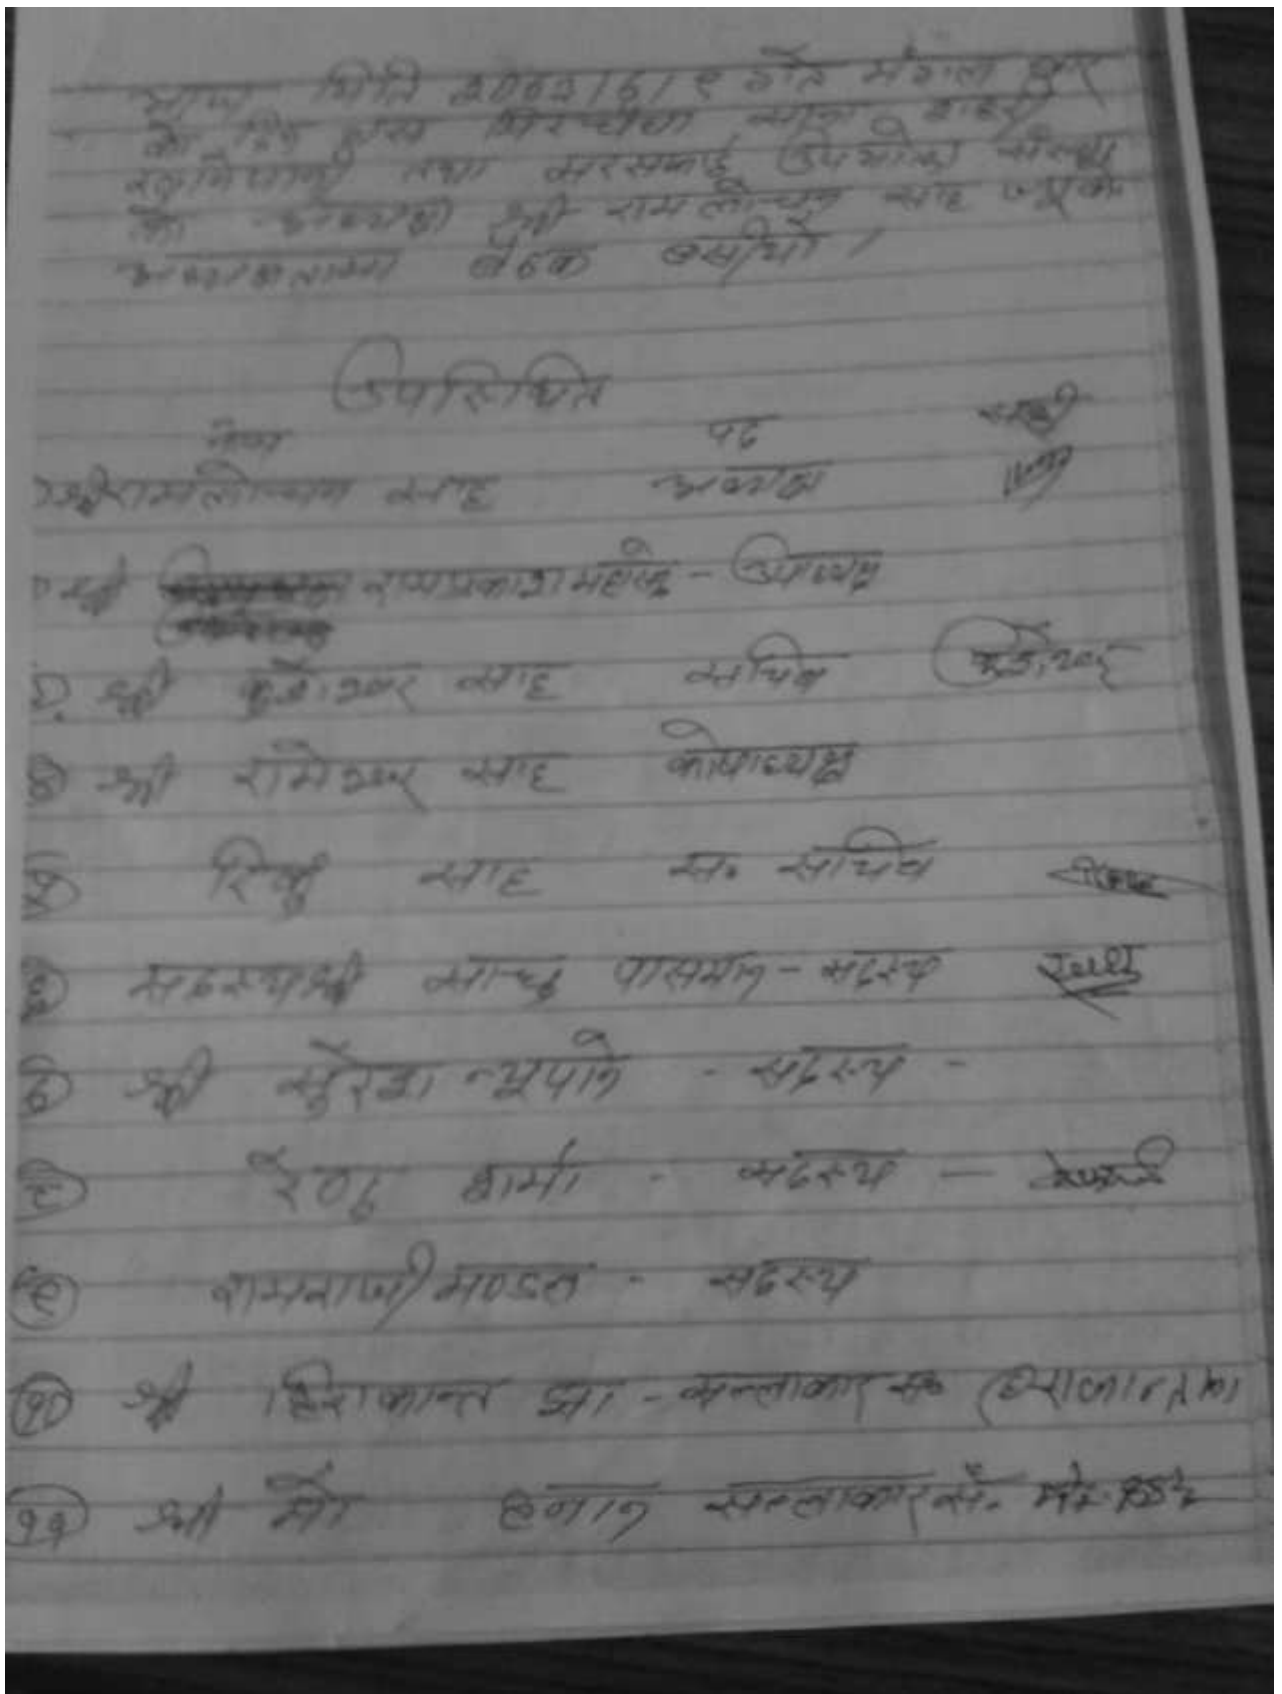 आज मिति गते मंगल वार
का दिन साना शहरी
खानेपानी तथा सरसफाई उपभोक्ता संस्था
का अध्यक्ष श्री राम लोचन साह ज्यूको
अध्यक्षतामा बैठक बसीयो ।
उपस्थिति
नाम पद सही
श्री रामलोचन साह अध्यक्ष
श्री रामप्रकाश महतो - उपाध्यक्ष
३. श्री साह सचिव
४ श्री रामेश्वर साह कोषाध्यक्ष
५ रिंकु साह स. सचिव
६ सदस्य श्री साधु पासमान - सदस्य
७ श्री सुरेश न्यौपाने - सदस्य -
८ रेणु शर्मा - सदस्य -
९ रामराजी मण्डल - सदस्य
१० श्री हिराकान्त झा - सल्लाकार स. हिराकान्त झा
११ श्री मो सल्लाकार स.